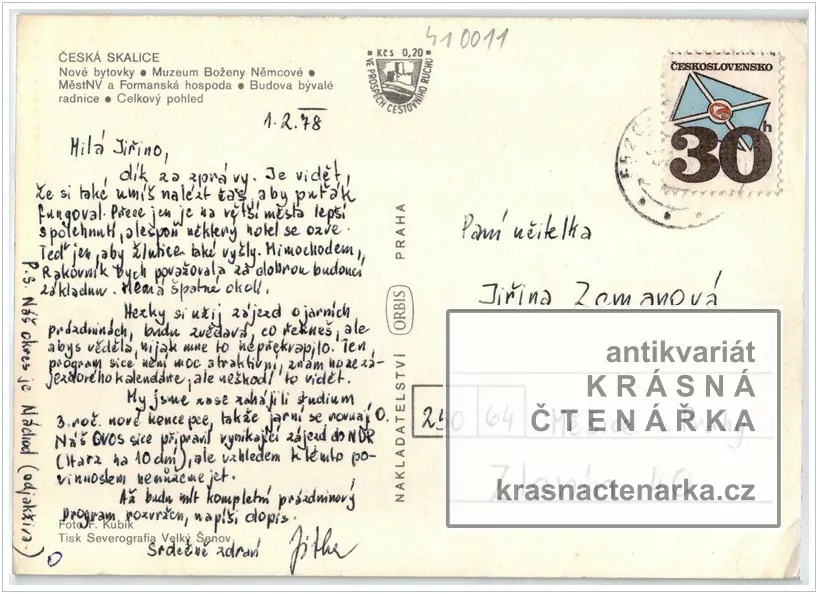 410011
ČESKÁ SKALICE
Nové bytovky ● Muzeum Boženy Němcové ●
MěstNV a Formanská hospoda ● Budova bývalé
radnice ● Celkový pohled
Kčs 0,20
VE PROSPĚCH CESTOVNÍHO RUCHU
ČESKOSLOVENSKO
30h
1.2.78
Milá Jiřino,
dík za zprávy. Je vidět,
že si také umíš nalézt čas, aby puťák
fungoval. Přece jen je na větší města lepší
spolehnutí, alespoň některý hotel se ozve.
Teď jen, aby Žlutice také vyšly. Mimochodem,
Rakovník bych považovala za dobrou budoucí
základnu. Nemá špatné okolí.
Hezky si užij zájezd o jarních
prázdninách, budu zvědavá, co řekneš, ale
abys věděla, nijak mne to nepřekvapilo. Ten
program sice není moc atraktivní, znám ho ze zá-
jezdového kalendáře, ale neškodí to vidět.
My jsme zase zahájili studium
3. roč. nové koncepce, takže jarní se rovnají 0.
Náš OVOS sice připravil vynikající zájezd do NDR
(Harz na 10 dní), ale vzhledem k těmto po-
vinnostem nemůžeme jet.
Až budu mít kompletní prázdninový
program rozvržen, napíši dopis.
Srdečně zdraví Jitka
P.S. Náš okres je Náchod (odjakživa.)
Foto F. Kubík
Tisk Severografia Velký Šenov
NAKLADATELSTVÍ ORBIS PRAHA
Paní učitelka
Jiřina Zemanová
250 64
antikvariát
KRÁSNÁ
ČTENÁŘKA
krasnactenarka.cz